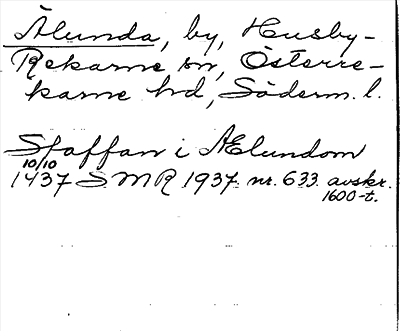 Ålunda, by, Husby-
Rekarne sn, Österre-
karne hd, Söderm. l.
Staffan i Ælundom
10/10
1437 SMR 1937. nr. 633. avskr.
1600-t.